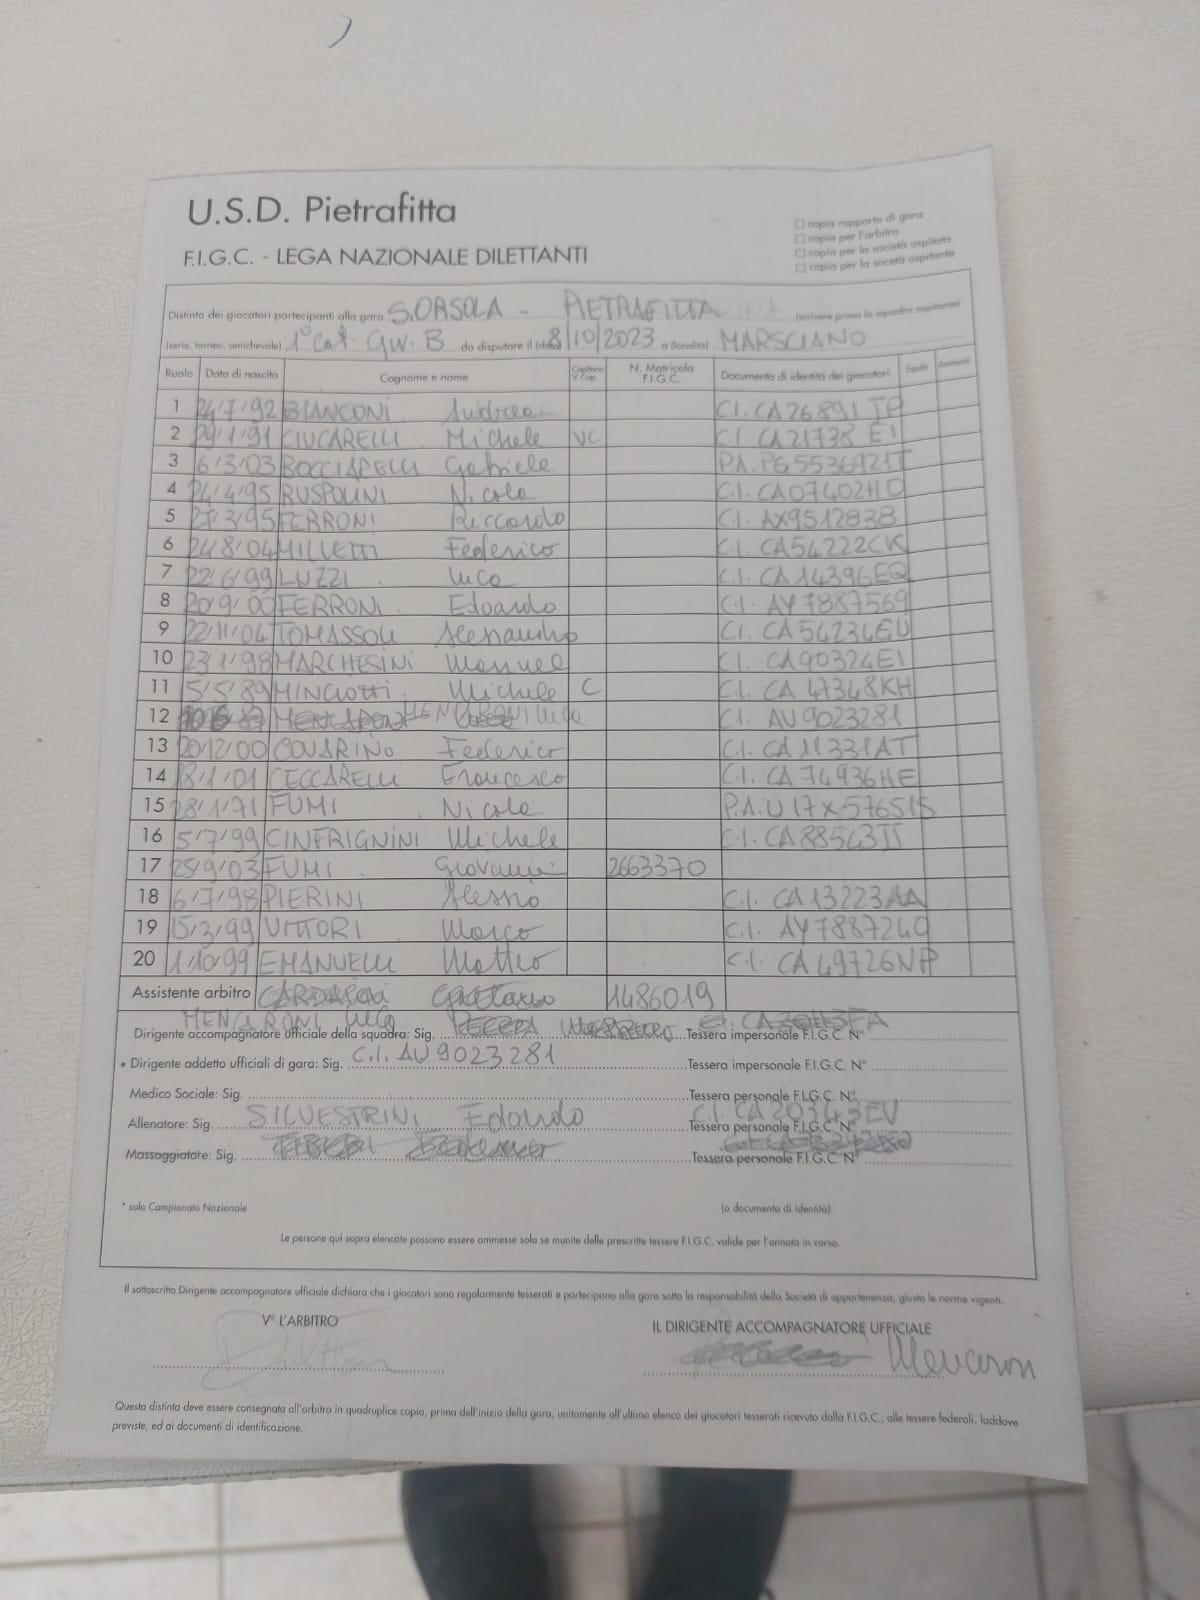 U.S.D. Pietrafitta
F.I.G.C. - LEGA NAZIONALE DILETTANTI
☐ copia rapporto di gara
☐ copia per l'arbitro
☐ copia per la società ospitata
☐ copia per la socetà ospitante
Distinta dei giocatori partecipanti alla gara S.ORSOLA - PIETRAFITTA (scrivere prima la squadra ospitante)
(serie, torneo, amichevole) 1° Cat. Gir. B da disputare il (data) 8/10/2023 a (località) MARSCIANO
Ruolo Data di nascita Cognome e nome Capitano V. Cap. N. Matricola F.I.G.C. Documento di identità dei giocatori Espulsi Ammoniti
1 24/7/92 BIANCONI Andrea C.I. CA26891
2 29/1/91 CIUCARELLI Michele VC C.I. CA21738 EI
3 6/3/03 BOCCIARELLI Gabriele PA. PG5536921T
4 24/4/95 RUSPOLINI Nicola C.I. CA07402HO
5 27/3/95 FERRONI Riccardo C.I. AX9512838
6 24/8/04 MILLETTI Federico C.I. CA54222CK
7 22/6/99 LUZZI Luca C.I. CA14396EQ
8 20/9/00 FERRONI Edoardo C.I. AY7887569
9 22/11/04 TOMASSOLI Alessandro C.I. CA54234EU
10 23/1/98 MARCHESINI Manuel C.I. CA90324EI
11 5/5/89 MINCIOTTI Michele C C.I. CA 47348KH
12 MENCARONI Luca C.I. AU9023281
13 20/12/00 COVARINO Federico C.I. CA11331AT
14 18/1/01 CECCARELLI Francesco C.I. CA74936HE
15 28/1/71 FUMI Nicola P.A. U17X57651S
16 5/7/99 CINFRIGNINI Michele C.I. CA88543JJ
17 25/9/03 FUMI Giovanni 2663370
18 6/7/98 PIERINI Alessio C.I. CA13223AA
19 15/3/99 VITTORI Marco C.I. AY7887240
20 1/10/99 EMANUELLI Matteo C.I. CA49726NP
Assistente arbitro Gaetano 1486019
MENCARONI Luca
Dirigente accompagnatore ufficiale della squadra: Sig. Tessera impersonale F.I.G.C. N°
• Dirigente addetto ufficiali di gara: Sig. C.I. AU9023281 Tessera impersonale F.I.G.C. N°
Medico Sociale: Sig. Tessera personale F.I.G.C. N°
Allenatore: Sig. SILVESTRINI Edoardo Tessera personale F.I.G.C. N° C.I. CA20343EV
Massaggiatore: Sig. Tessera personale F.I.G.C. N°
* solo Campionato Nazionale (o documento di identità)
Le persone qui sopra elencate possono essere ammesse solo se munite delle prescritte tessere F.I.G.C. valide per l'annata in corso.
Il sottoscritto Dirigente accompagnatore ufficiale dichiara che i giocatori sono regolarmente tesserati e partecipano alla gara sotto la responsabilità della Società di appartenenza, giusto le norme vigenti.
V° L'ARBITRO
IL DIRIGENTE ACCOMPAGNATORE UFFICIALE
Mencaroni
Questa distinta deve essere consegnata all'arbitro in quadruplice copia, prima dell'inizio della gara, unitamente all'ultimo elenco dei giocatori tesserati ricevuto dalla F.I.G.C., alle tessere federali, laddove
previste, ed ai documenti di identificazione.